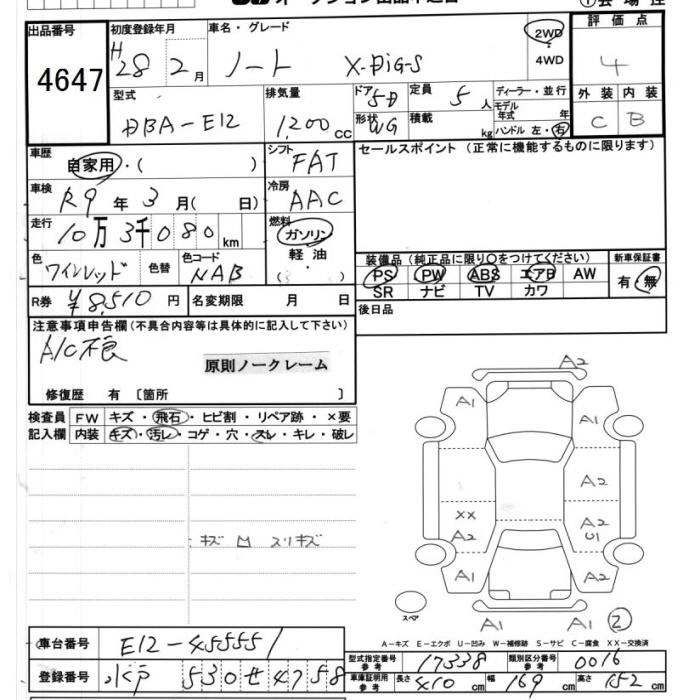 出品番号 4647
初度登録年月 H28 2月
車名・グレード ノート X-DIG-S
2WD
4WD
評価点 4
型式 DBA-E12
排気量 1,200 cc
ドア 5D
形状 WG
定員 5人
積載 kg
ディーラー・並行
モデル年式 年
ハンドル 左・右
外装 内装
C B
車歴 自家用・( )
シフト FAT
セールスポイント (正常に機能するものに限ります)
車検 R9年 3月( 日)
冷房 AAC
走行 10万3千080km
燃料 ガソリン
軽油
色 ワインレッド 色替
色コード NAB
装備品 (純正品に限り○をつけてください) 新車保証書
PS PW ABS エアB AW 有・無
SR ナビ TV カワ
R券 ¥8,510円 名変期限 月 日
後日品
注意事項申告欄(不具合内容等は具体的に記入して下さい)
A/C不良
原則ノークレーム
修復歴 有 〔箇所 〕
検査員 FW キズ・飛石・ヒビ割・リペア跡・×要
記入欄 内装 キズ・汚レ・コゲ・穴・スレ・キレ・破レ
キズ M スリキズ
A2
A1 A1
A2
XX A2
A2 U1
A1 A2
スペア
A1 A1 2
A-キズ E-エクボ U-凹み W-補修跡 S-サビ C-腐食 XX-交換済
車台番号 E12-455551
登録番号 水戸 530 せ 4758
型式指定番号 参考 17338 類別区分番号 参考 0016
車庫証明用 参考 長さ 410cm 幅 169cm 高さ 152cm